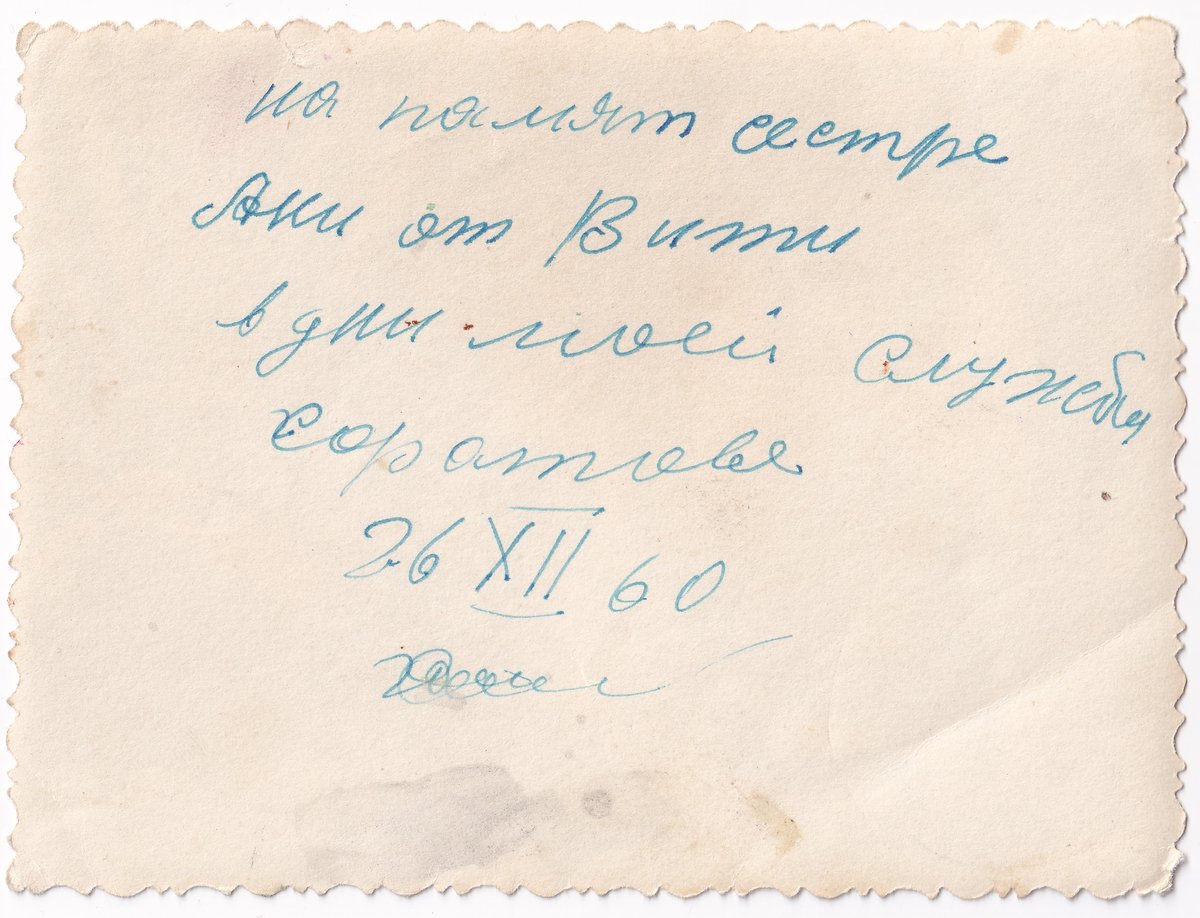 на памят сестре
Ани от Вити
в дни моей службы
Соратове
26 XII 60